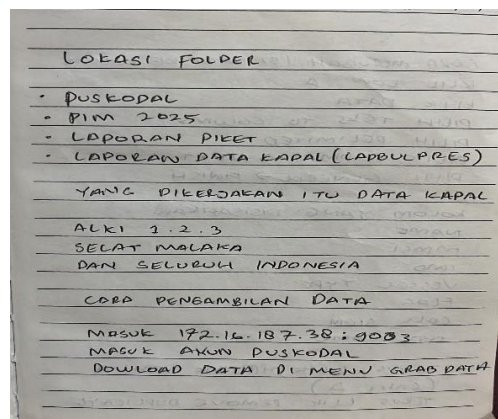 LOKASI FOLDER
• PUSKODAL
• PIM 2025
• LAPORAN PIKET
• LAPORAN DATA KAPAL (LAPBULPRES)
YANG DIKERJAKAN ITU DATA KAPAL
ALKI 1.2.3
SELAT MALAKA
DAN SELURUH INDONESIA
CARA PENGAMBILAN DATA
MASUK 172.16.187.38:9003
MASUK AKUN PUSKODAL
DOWLOAD DATA DI MENU GRAB DATA